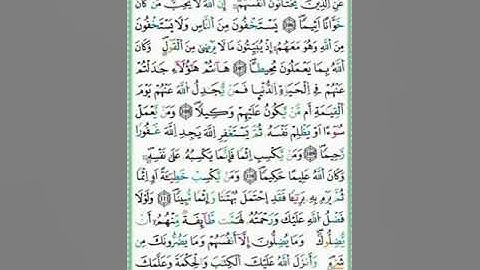 عَنِ الَّذِينَ يَخْتَانُونَ أَنفُسَهُمْ إِنَّ اللَّهَ لَا يُحِبُّ مَن كَانَ
خَوَّانًا أَثِيمًا يَسْتَخْفُونَ مِنَ النَّاسِ وَلَا يَسْتَخْفُونَ
مِنَ اللَّهِ وَهُوَ مَعَهُمْ إِذْ يُبَيِّتُونَ مَا لَا يَرْضَىٰ مِنَ الْقَوْلِ وَكَانَ
اللَّهُ بِمَا يَعْمَلُونَ مُحِيطًا هَٰأَنتُمْ هَٰؤُلَاءِ جَٰدَلْتُمْ
عَنْهُمْ فِي الْحَيَوٰةِ الدُّنْيَا فَمَن يُجَٰدِلُ اللَّهَ عَنْهُمْ يَوْمَ
الْقِيَٰمَةِ أَم مَّن يَكُونُ عَلَيْهِمْ وَكِيلًا وَمَن يَعْمَلْ
سُوءًا أَوْ يَظْلِمْ نَفْسَهُ ثُمَّ يَسْتَغْفِرِ اللَّهَ يَجِدِ اللَّهَ غَفُورًا
رَّحِيمًا وَمَن يَكْسِبْ إِثْمًا فَإِنَّمَا يَكْسِبُهُ عَلَىٰ نَفْسِهِ
وَكَانَ اللَّهُ عَلِيمًا حَكِيمًا وَمَن يَكْسِبْ خَطِيئَةً أَوْ إِثْمًا
ثُمَّ يَرْمِ بِهِ بَرِيئًا فَقَدِ احْتَمَلَ بُهْتَٰنًا وَإِثْمًا مُّبِينًا وَلَوْلَا
فَضْلُ اللَّهِ عَلَيْكَ وَرَحْمَتُهُ لَهَمَّت طَّائِفَةٌ مِّنْهُمْ أَن
يُضِلُّوكَ وَمَا يُضِلُّونَ إِلَّا أَنفُسَهُمْ وَمَا يَضُرُّونَكَ مِن
شَيْءٍ وَأَنزَلَ اللَّهُ عَلَيْكَ الْكِتَٰبَ وَالْحِكْمَةَ وَعَلَّمَكَ